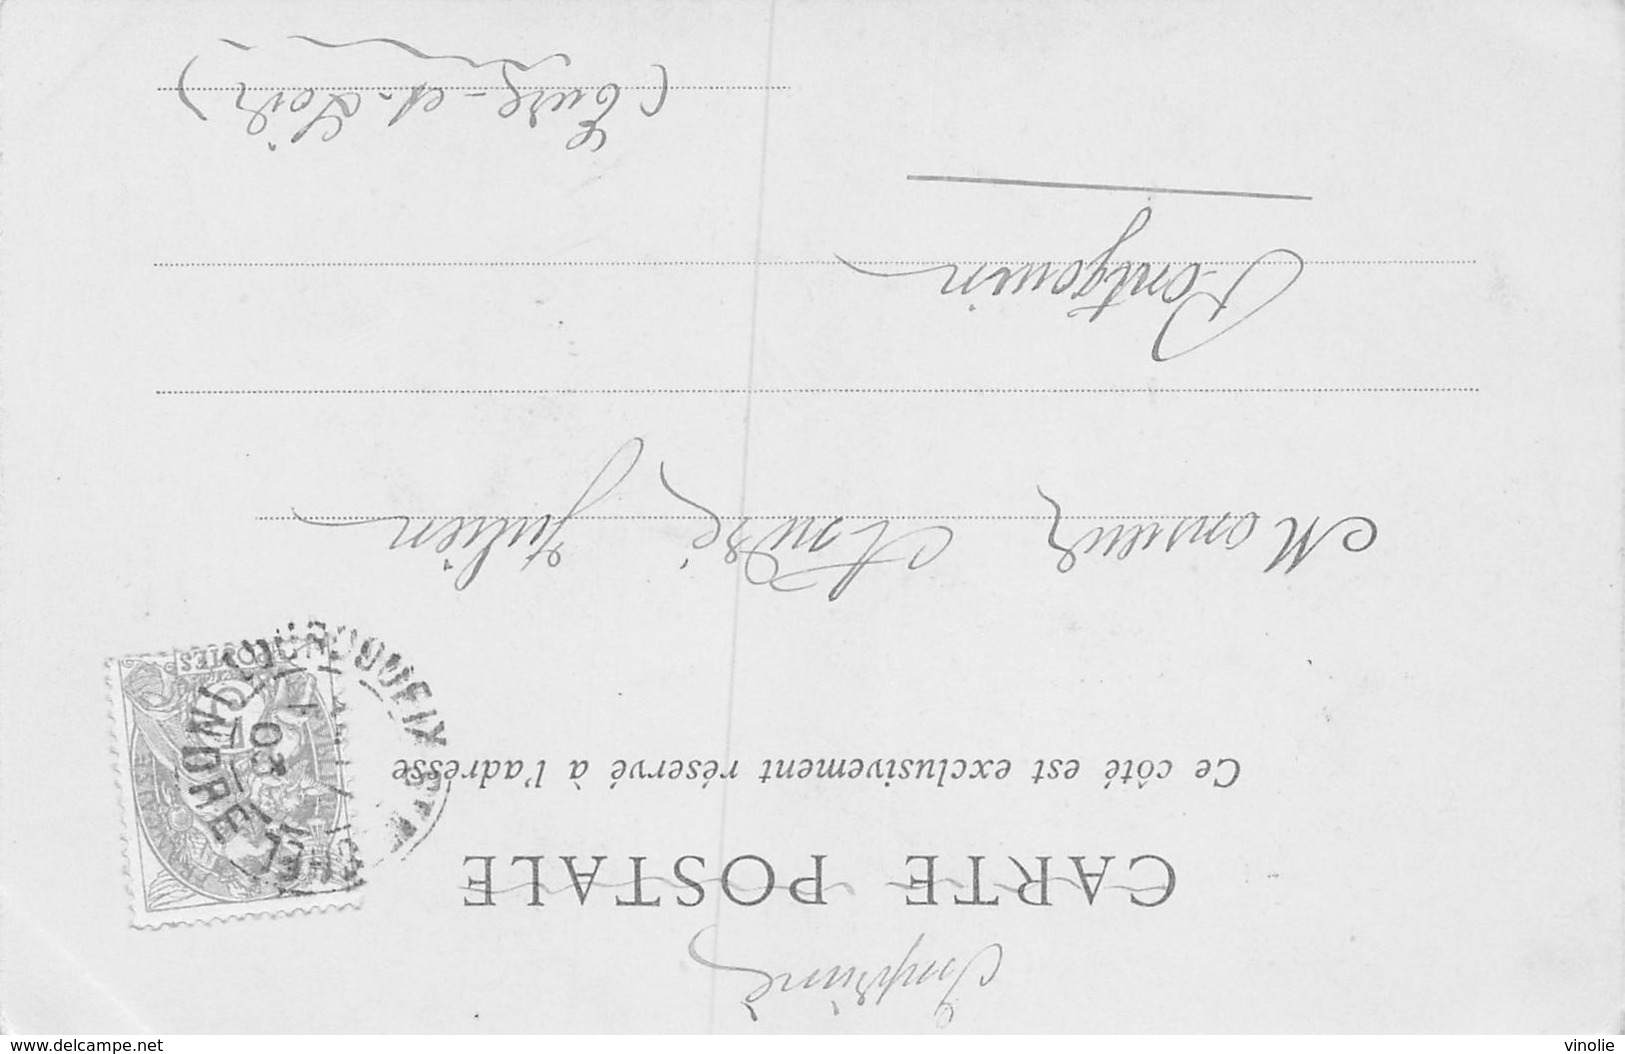 Imprimé
CARTE POSTALE
Ce côté est exclusivement réservé à l'adresse
POSTES
INDRE
03
Monsieur André Julien
Pontgouin
(Eure-et-Loir)
delcampe.net
vinolie